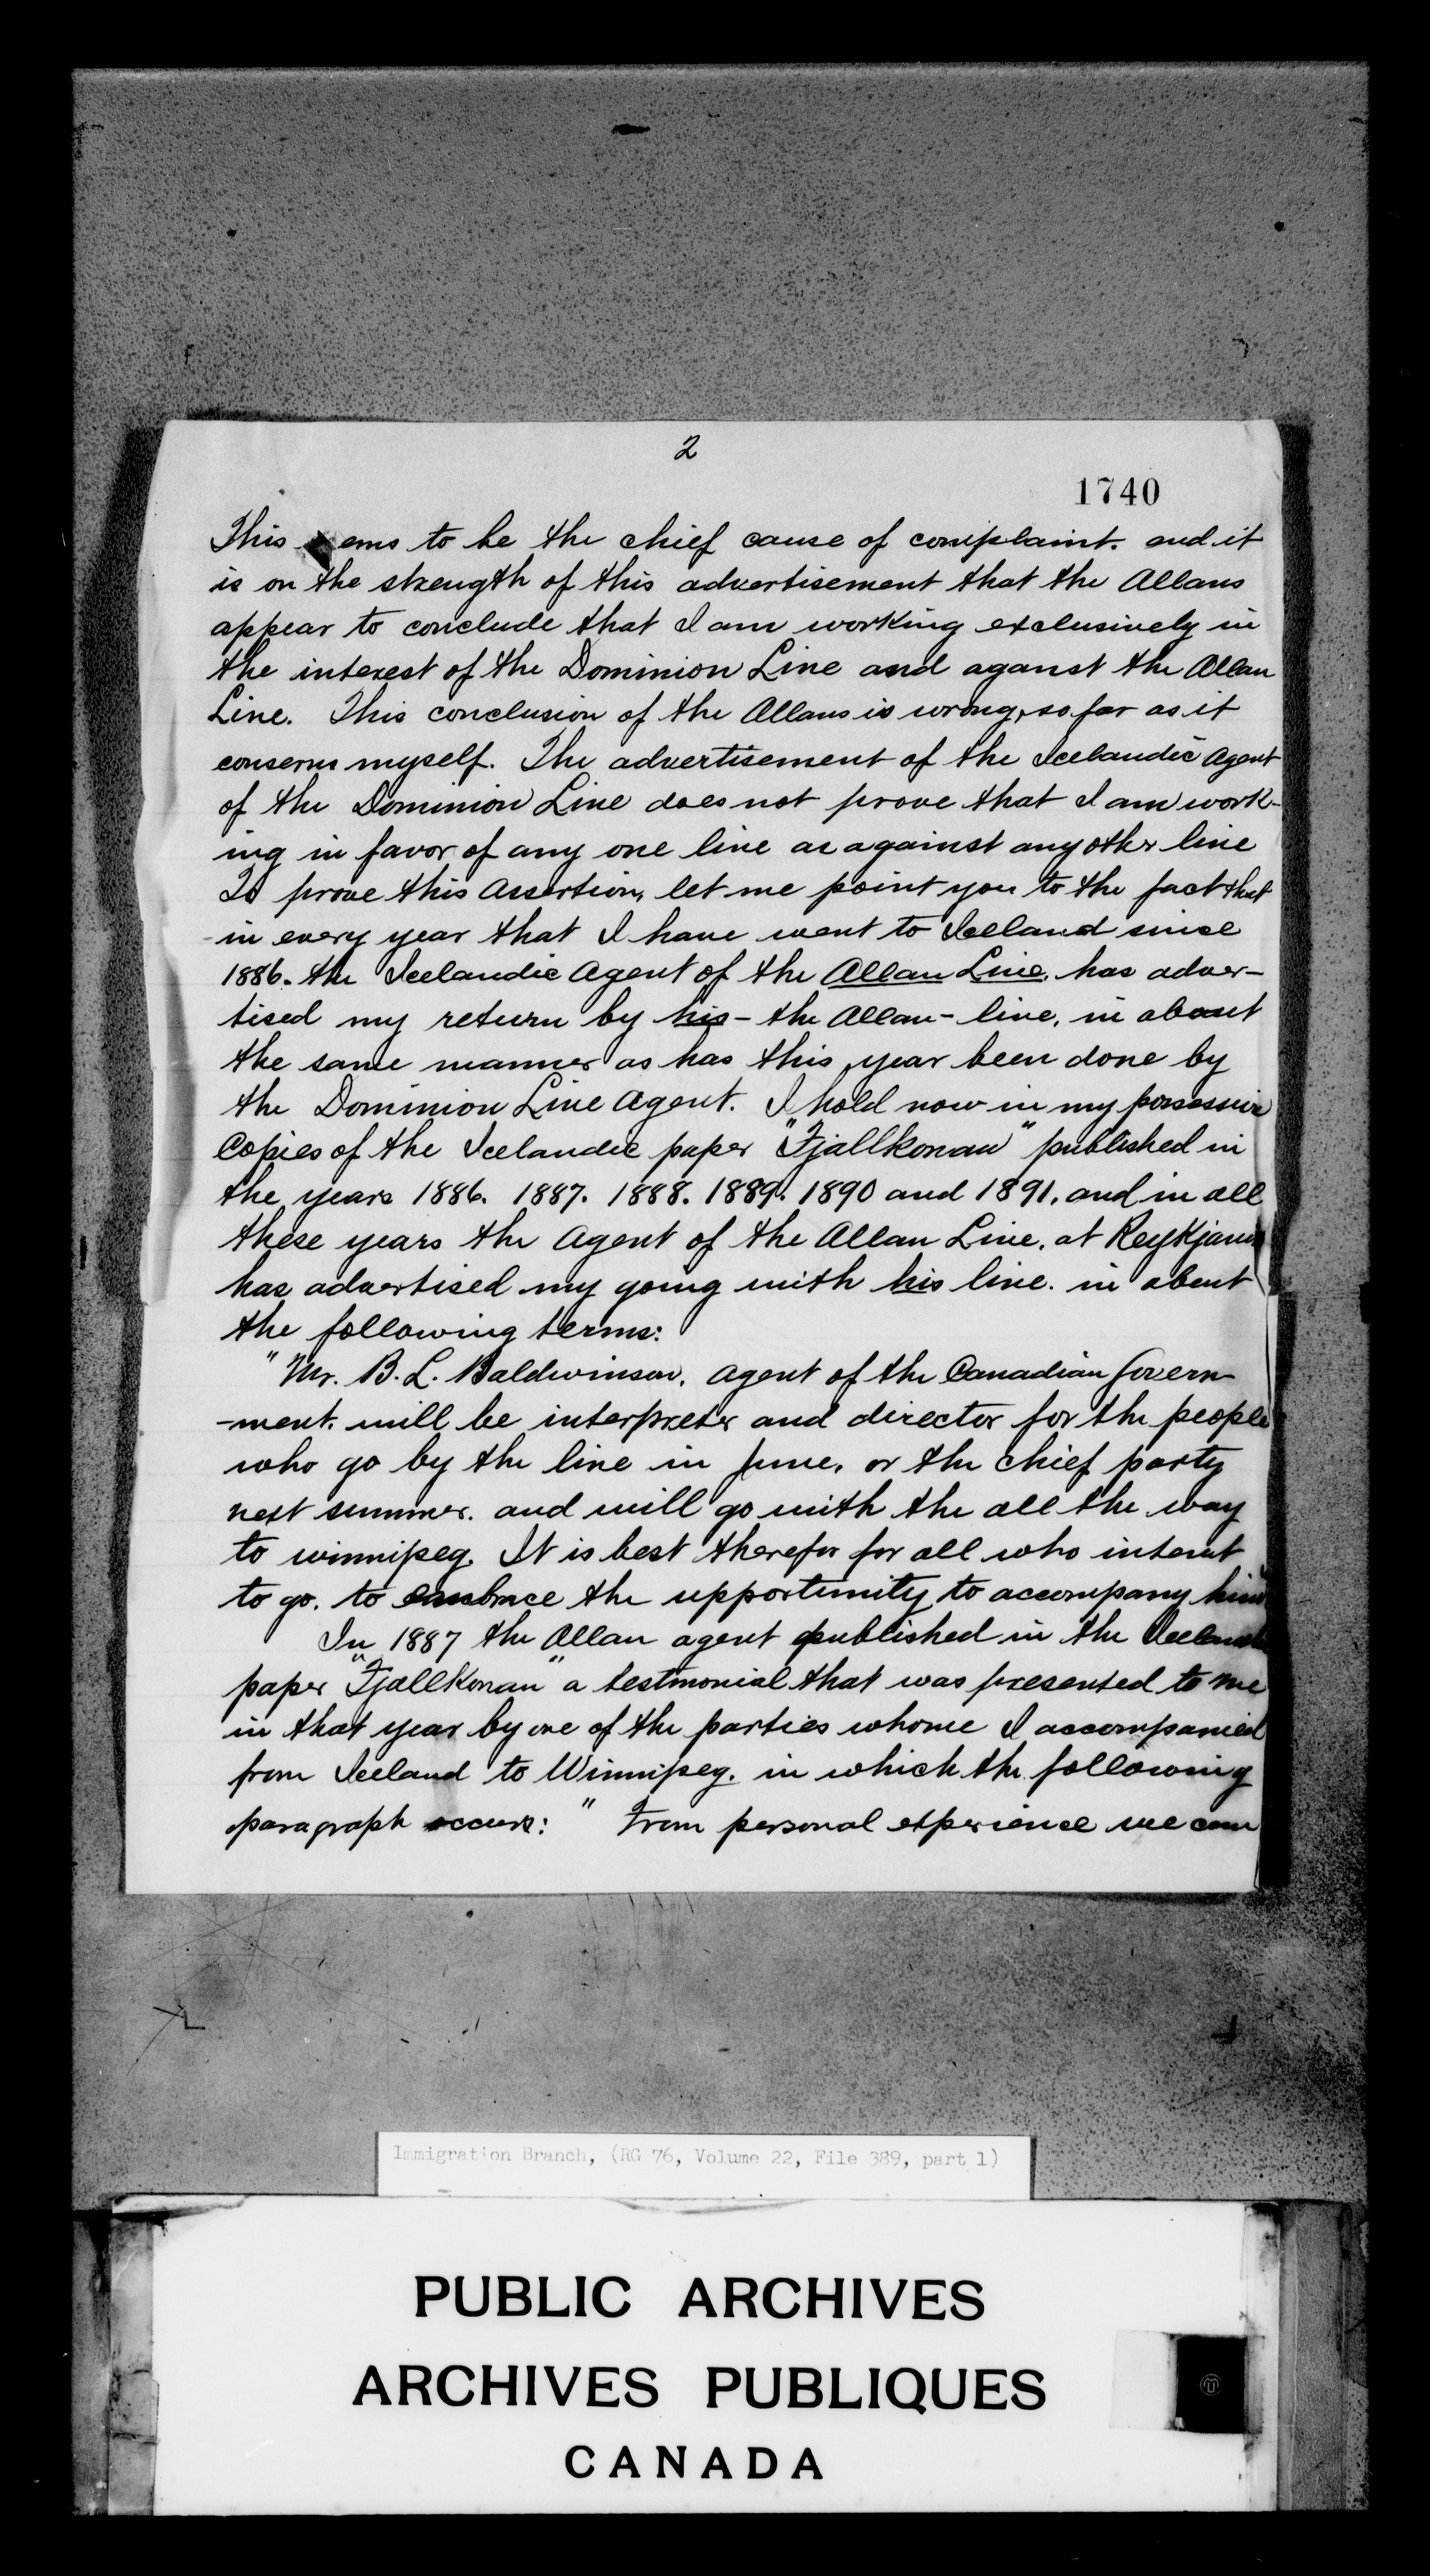 2
1740
This seems to be the chief cause of complaint. and it
is on the strength of this advertisement that the Allans
appear to conclude that I am working exclusively in
the interest of the Dominion Line and aganst the Allan
Line. This conclusion of the Allans is wrong, so far as it
conserns myself. The advertisement of the Icelandic Agent
of the Dominion Line does not prove that I am work-
ing in favor of any one line as against any other line
To prove this Assertion, let me point you to the fact that
in every year that I have went to Iceland since
1886. the Icelandic Agent of the Allan Line. has adver-
tised my return by his - the Allan - line, in about
the same manner as has this year been done by
the Dominion Line Agent. I hold now in my possession
Copies of the Icelandic paper "Fjallkonan" published in
the years 1886. 1887. 1888. 1889. 1890 and 1891. and in all
these years the Agent of the Allan Line. at
has advertised my going with his line. in about
the following terms:
"Mr. B. L. Baldwinson. Agent of the Canadian Govern-
-ment. will be interpreter and director for the people
who go by the line in June. or the chief party
next summer. and will go with the all the way
to winnipeg. It is best therefor for all who intent
to go. to embrace the upportunity to accompany him
In 1887 the Allan agent published in the
paper "Fjallkonan" a testmonial that was presented to me
in that year by one of the parties whome I accompanied
from Iceland to Winnipeg. in which the following
paragraph occurs: " From personal experience we can
Immigration Branch, (RG 76, Volume 22, File 389, part 1)
PUBLIC ARCHIVES
ARCHIVES PUBLIQUES
CANADA